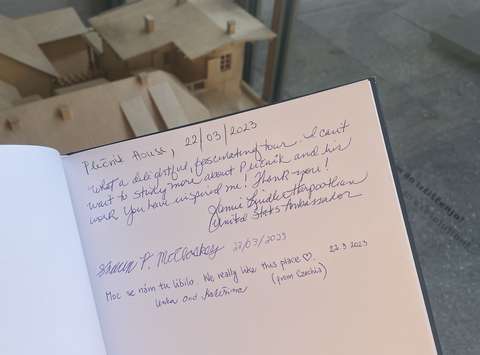 Plečnik House, 22/03/2023
What a delightful, fascinating tour. I can't
wait to study more about Plečnik and his
work. You have inspired me! Thank you!
Jamie Lindler Harpootlian
United States Ambassador
P. McCloskey 22/03/2023
Moc se nám tu líbilo. We really like this place ♡. 22.3 2023
and Kateřina (from Czechia)